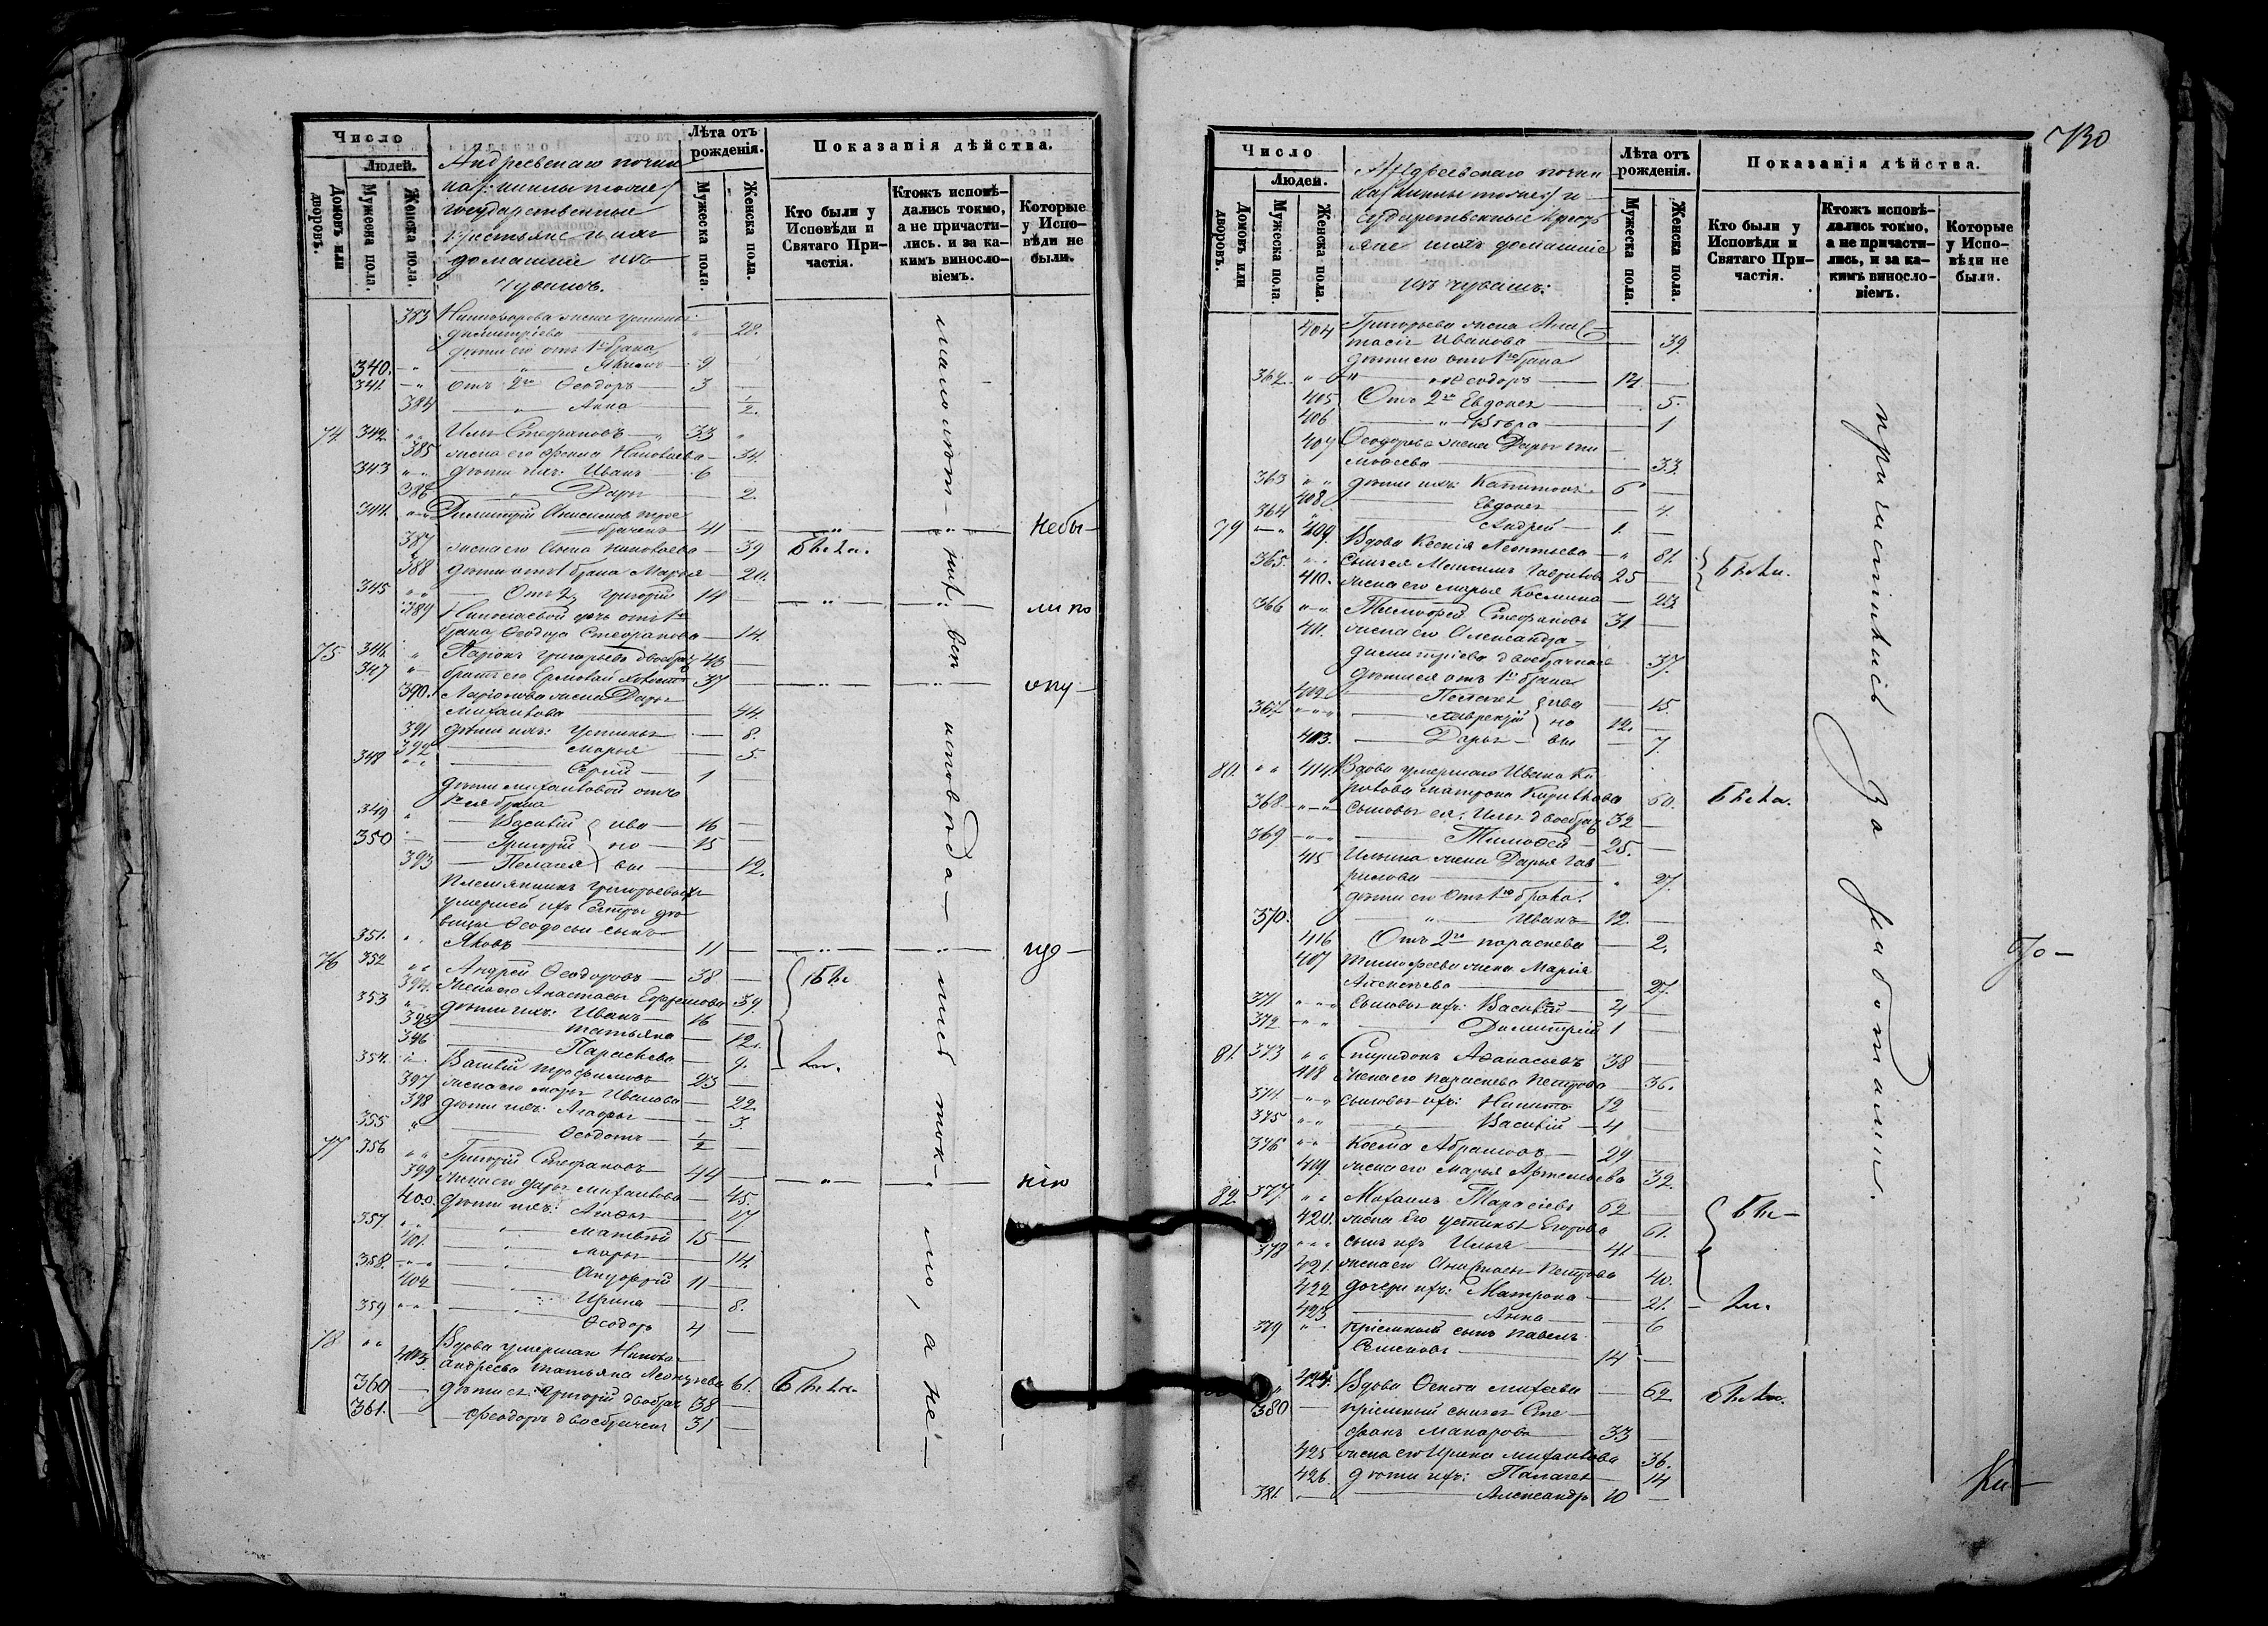 Число
Людей.
Домовъ или дворовъ.
Мужеска пола.
Женска пола.
Андреевскаго почин
ка
государственные
крестьяне и ихъ
домашніе изъ
чувашъ.
Лѣта отъ рожденія.
Мужеска пола.
Женска пола.
Показанія дѣйства.
Кто были у Исповѣди и Святаго Причастія.
Ктожъ исповѣдались токмо, а не причастились. и за какимъ винословіемъ.
Которые у Исповѣди не были.
383 жена Устинья
Димитріева 28.
дѣти его отъ 1го брака
340. 9
341. отъ 2го Ѳеодоръ 3
384 Анна 1/2.
74 342. Илья Стефановъ 33
385 жена его Николаева 34.
343 дѣти ихъ: Иванъ 6
386 Дарья 2.
344. Димитрій Анисимовъ трое
браченъ 41
387 жена его Анна Николаева 39
388 дѣти отъ 1 брака Марья 20.
345 Отъ 2 Григорій 14
389 Николаевой дочь отъ 1го
брака Ѳеодора Стефанова 14.
75 346. Ларіонъ Григорьевъ двоебрач 43
347 братъ его Ермолай холостъ 37
390. Ларіонова жена Дарья
Михайлова 44.
391 дѣти ихъ: Устинья 8.
392 Марья 5.
348 Сергій 1
дѣти Михайловой отъ
1го ея брака
349 Василій 16
350 Григорій 15
393 Пелагея 12.
Ива
но
вы
Племянникъ Григорьевыхъ
умершей ихъ сестры дѣ
вицы Ѳеодосьи сынъ
351. Яковъ 11
76 352 Андрей Ѳеодоровъ 38
394. Жена его Анастасья Ефремова 39.
353 дѣти ихъ: Иванъ 16
395 Татьяна 12.
396 Параскева 9.
354. Василій Трофимовъ 23
397 жена его Марья Иванова 22.
398 дѣти ихъ: Агафья 3.
355 Ѳеодотъ 1/2
77 356 Григорій Стефановъ 44
399 Жена его Дарья Михайлова 45.
400. дѣти ихъ: Агафья 17
357. Матвѣй 15
401. Марья 14.
358. Ануфрій 11
402 Ирина 8.
359 Ѳеодоръ 4
78 403. Вдова умершаго Никола
Андреева Татьяна 61.
360 дѣти ея: Григорій двоебрач 38
361. Ѳеодоръ двоебраченъ 31
малолѣт-
ст
вѣ
исповѣда-
лись ток-
мо, а не
Небы-
ли по
опу-
ще-
нію
130
Число
Людей.
Домовъ или дворовъ.
Мужеска пола.
Женска пола.
Андреевскаго почин
ка го
сударственные кресть
яне ихъ домашніе
изъ чувашъ:
Лѣта отъ рожденія.
Мужеска пола.
Женска пола.
Показанія дѣйства.
Кто были у Исповѣди и Святаго Причастія.
Ктожъ исповѣдались токмо, а не причастились, и за какимъ винословіемъ.
Которые у Исповѣди не были.
404 Григорьева жена Анас
тасія Иванова 39.
дѣти его отъ 1го брака
362. Ѳеодоръ 14
405 Отъ 2го Евдокея 5.
406 Вѣра 1
407 Ѳеодорова жена Дарья Ти
моѳеева 33.
363 дѣти ихъ: Капитонъ 6
408 Евдокея 4.
364 Андрей 1.
79 409. Вдова Ксенія Леонтьева 81.
365. Сынъ ея Гавриловъ 25
410. жена его Марья Космина 23
366 Тимофей Стефановъ 31
411. жена его Александра
Димитріева двоебрачная 37.
дѣти ея отъ 1го брака
412. Пелагея 15.
367 Лаврентій 12.
413. Дарья 7.
Ива
но
вы
80. 414. Вдова умершаго Ивана Ки
рилова Матрона Кирилова 60.
368. сыновья ея: Илья двоебрач 32
369 Тимоѳей 25.
415 Ильина жена Дарья Гав
рилова 27.
дѣти его отъ 1го брака.
370. Иванъ 12.
416 Отъ 2го Параскева 2.
417 Тимофеева жена Марія
Алексѣева 27.
371 Сыновья ихъ: Василій 4
372 Димитрій 1
81. 373 Спиридонъ Аѳанасьевъ 38
418 Жена его Параскева Петрова 36.
374. сыновья ихъ: Никита 12
375 Василій 4
376 Косма Абрамовъ 29
419. жена его Марья Артемьева 32.
82. 377. Михаилъ Тарасіевъ 62
420. жена его Устинья Егорова 61.
378 сынъ ихъ Илья 41.
421. жена его Анастасья Петрова 40.
422 дочери ихъ: Матрона 21.
423 Анна 6
379 пріемный сынъ Павелъ
Семеновъ 14
424. Вдова Михеева 62
380 пріемный сынъ ея Сте
фанъ Макаровъ 33
425 жена его Ирина Михайлова 36.
426. дѣти ихъ: Палагея 14
381. Александръ 10
причастились
За работами.